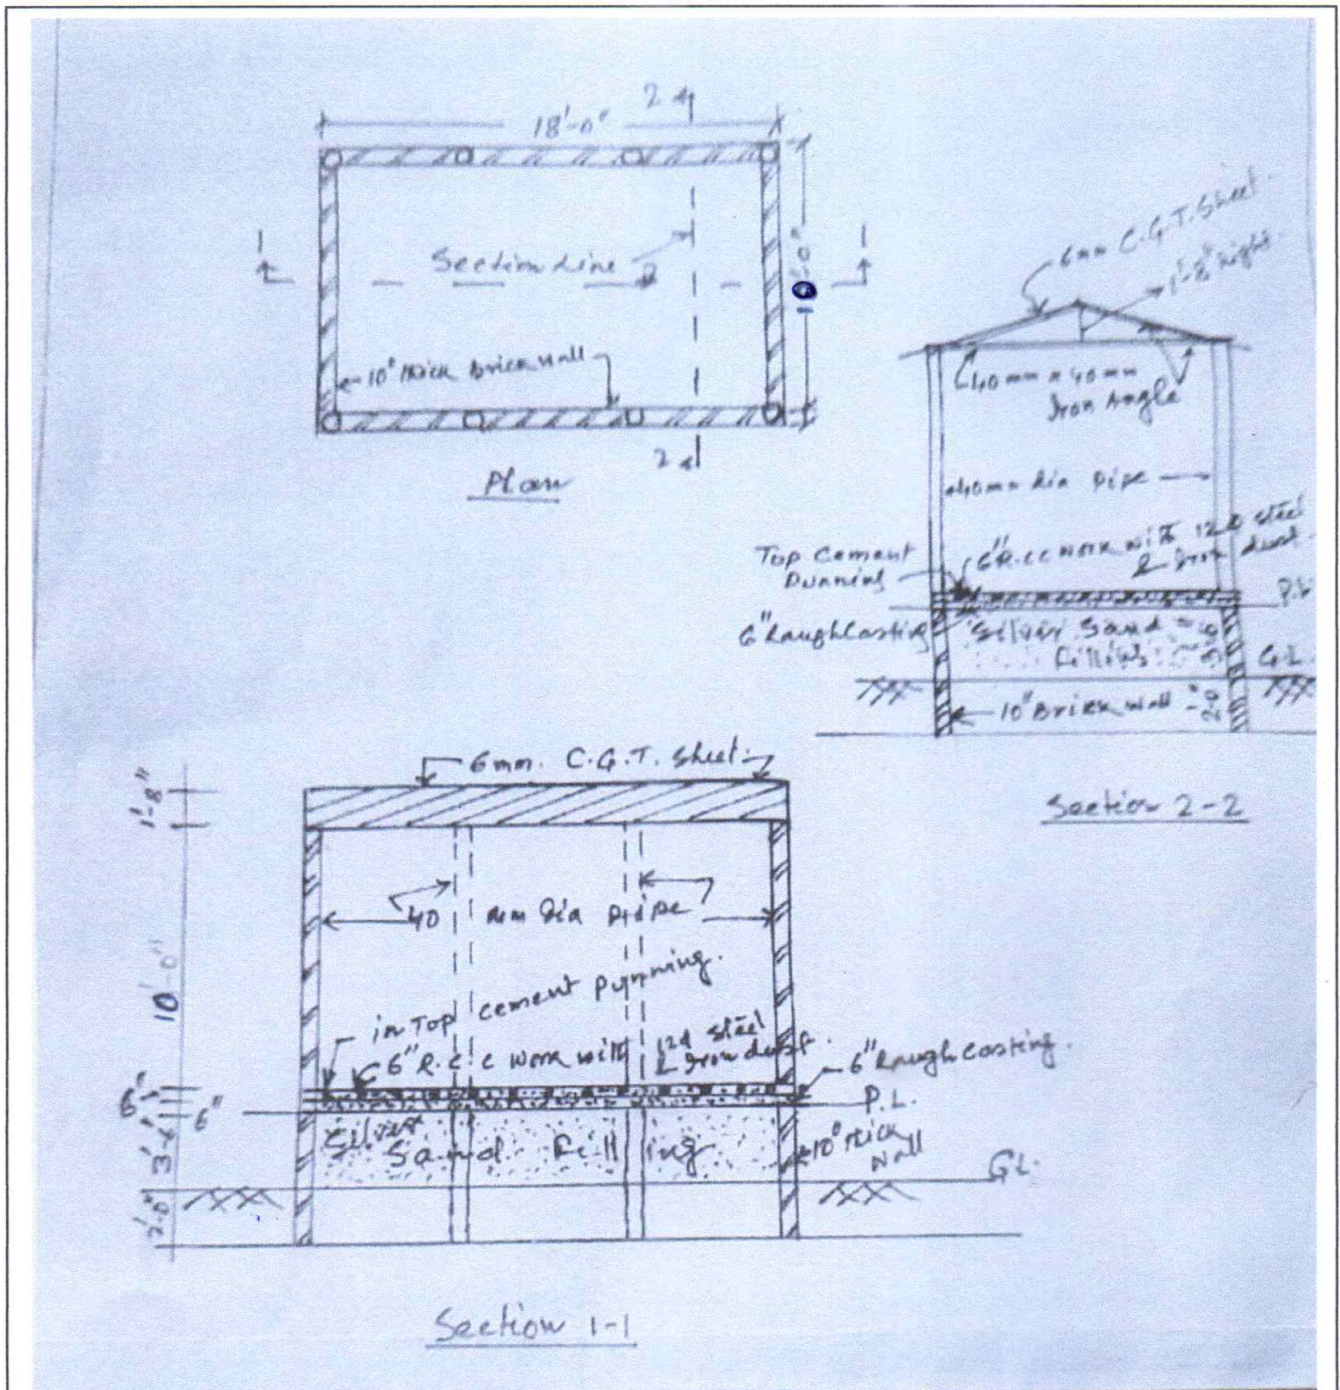 2
18'-0"
1
1
Section Line
10'-0"
10" thick Brick wall
2
Plan
6mm C.G.T. Sheet
1'-8" hight
40mm x 40mm
Iron Angle
40mm dia pipe
Top Cement
Punning
6" R.cc work with 12 steel
& Iron dust.
6" Rough Casting
P.L.
Silver Sand
Filling
3'-6"
G.L.
10" Brick wall
2'-0"
Section 2-2
6mm. C.G.T. Sheet.
1'-8"
40 mm dia pipe
10'-0"
in Top cement punning.
6" R.c.c work with 12 steel
& Iron dust.
6" Rough casting.
6"
6"
P.L.
Silver
Sand Filling
10" thick
wall
3'-6"
G.L.
2'-0"
Section 1-1